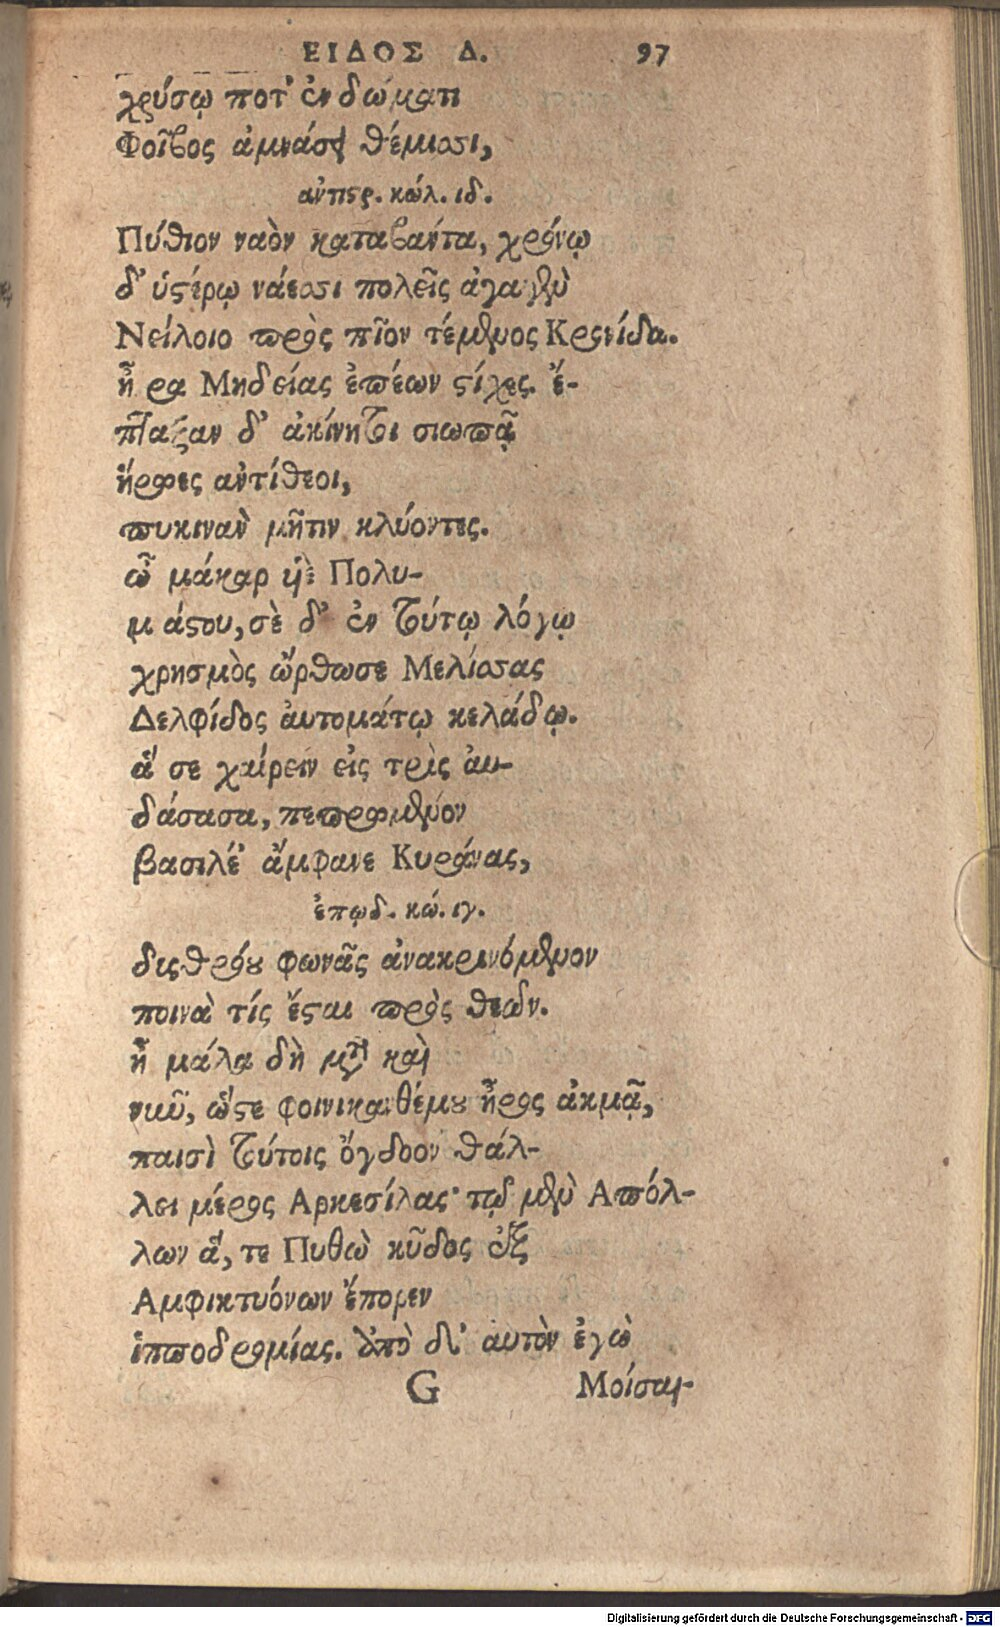 ΕΙΔΟΣ Δ. 97
χρύσῳ ποτ' ἐν δώματι
Φοῖβος ἀμνάσει θέμισσι,
ἀντιστρ. κώλ. ιδ.
Πύθιον ναὸν καταβάντα, χρόνῳ
δ' ὑστέρῳ νάεσσι πολεῖς ἀγαγὲν
Νείλοιο πρὸς πῖον τέμενος Κρονίδα.
ἦ ρα Μηδείας ἐπέων στίχες. ἔ-
πταξαν δ' ἀκίνητοι σιωπᾷ
ἥρωες ἀντίθεοι,
πυκινὰν μῆτιν κλύοντες.
ὦ μάκαρ ὑὲ Πολυ-
μνάστου, σὲ δ' ἐν τούτῳ λόγῳ
χρησμὸς ὤρθωσε Μελίσσας
Δελφίδος ἀυτομάτῳ κελάδῳ.
ἅ σε χαίρειν εἰς τρὶς ἀυ-
δάσασα, πεπρωμένον
βασιλέ' ἄμφανε Κυράνας,
ἐπῳδ. κώ. ιγ.
δυςθρόου φωνᾶς ἀνακρινόμενον
ποινὰ τίς ἔσται πρὸς θεῶν.
ἦ μάλα δὴ μετὰ καὶ
νῦν, ὥστε φοινικανθέμου ἦρος ἀκμᾷ,
παισὶ τούτοις ὄγδοον θάλ-
λει μέρος Αρκεσίλας· τῷ μὲν Απόλ-
λων ἅ, τε Πυθὼ κῦδος ἐξ
Αμφικτυόνων ἔπορεν
ἱπποδρομίας. ἀπὸ δ' αυτὸν ἐγὼ
G Μοίσαι-
Digitalisierung gefördert durch die Deutsche Forschungsgemeinschaft - DFG